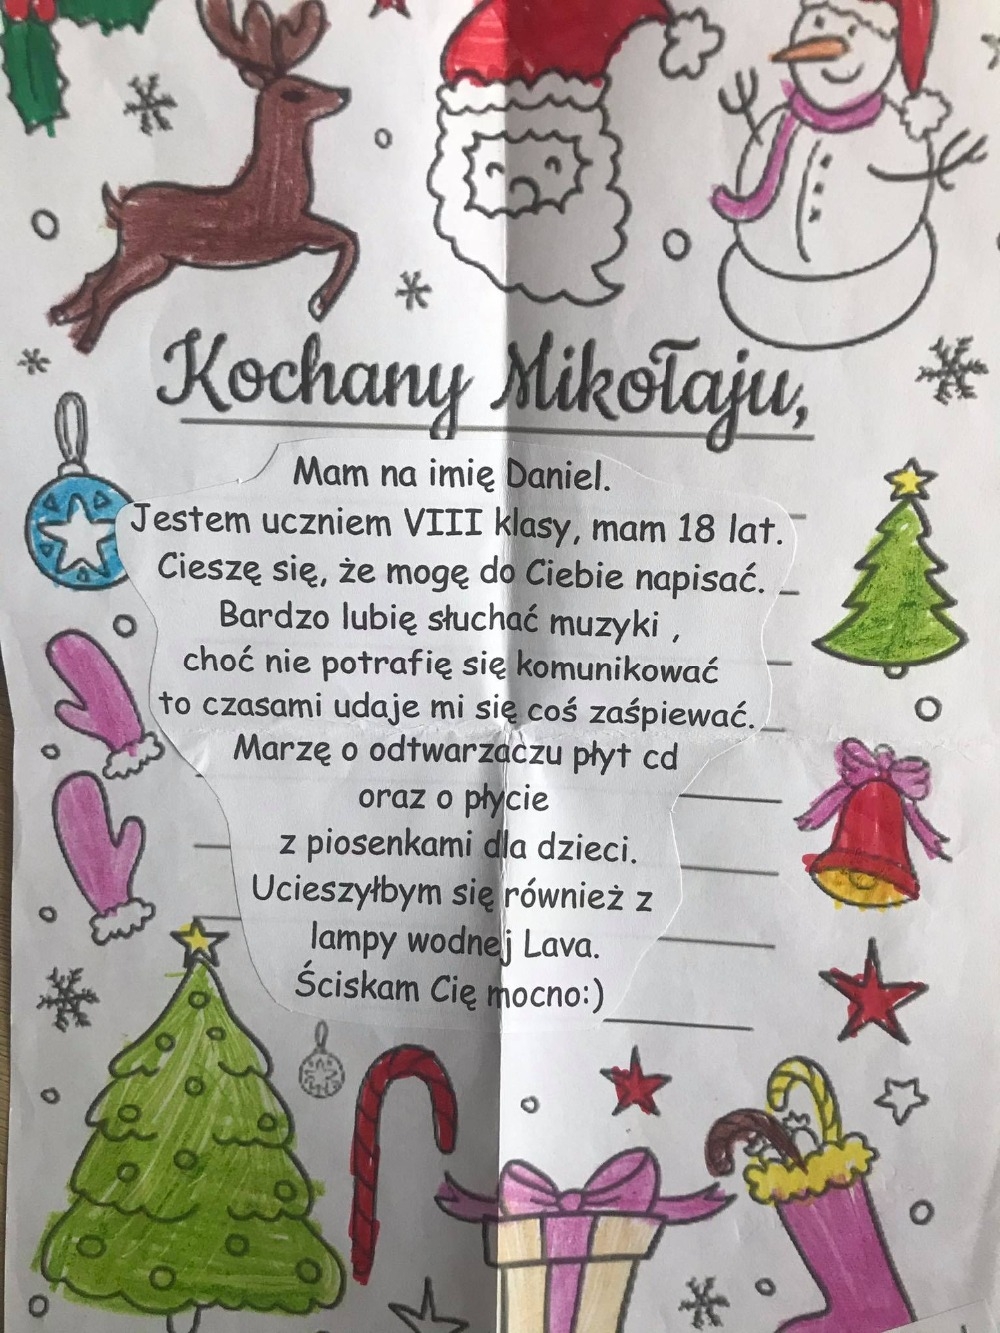 Kochany Mikołaju,
Mam na imię Daniel.
Jestem uczniem VIII klasy, mam 18 lat.
Cieszę się, że mogę do Ciebie napisać.
Bardzo lubię słuchać muzyki ,
choć nie potrafię się komunikować
to czasami udaje mi się coś zaśpiewać.
Marzę o odtwarzaczu płyt cd
oraz o płycie
z piosenkami dla dzieci.
Ucieszyłbym się również z
lampy wodnej Lava.
Ściskam Cię mocno:)